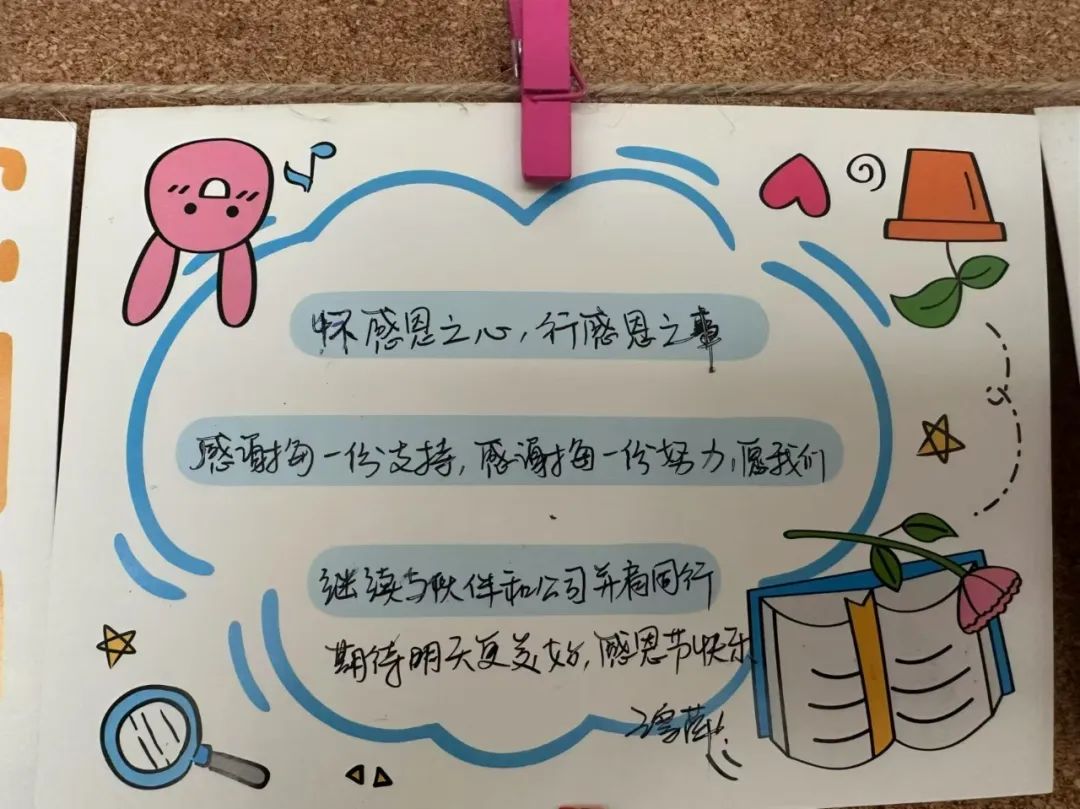 怀感恩之心，行感恩之事
感谢每一份支持，感谢每一份努力，愿我们
继续与伙伴和公司并肩同行
期待明天更美好，感恩节快乐